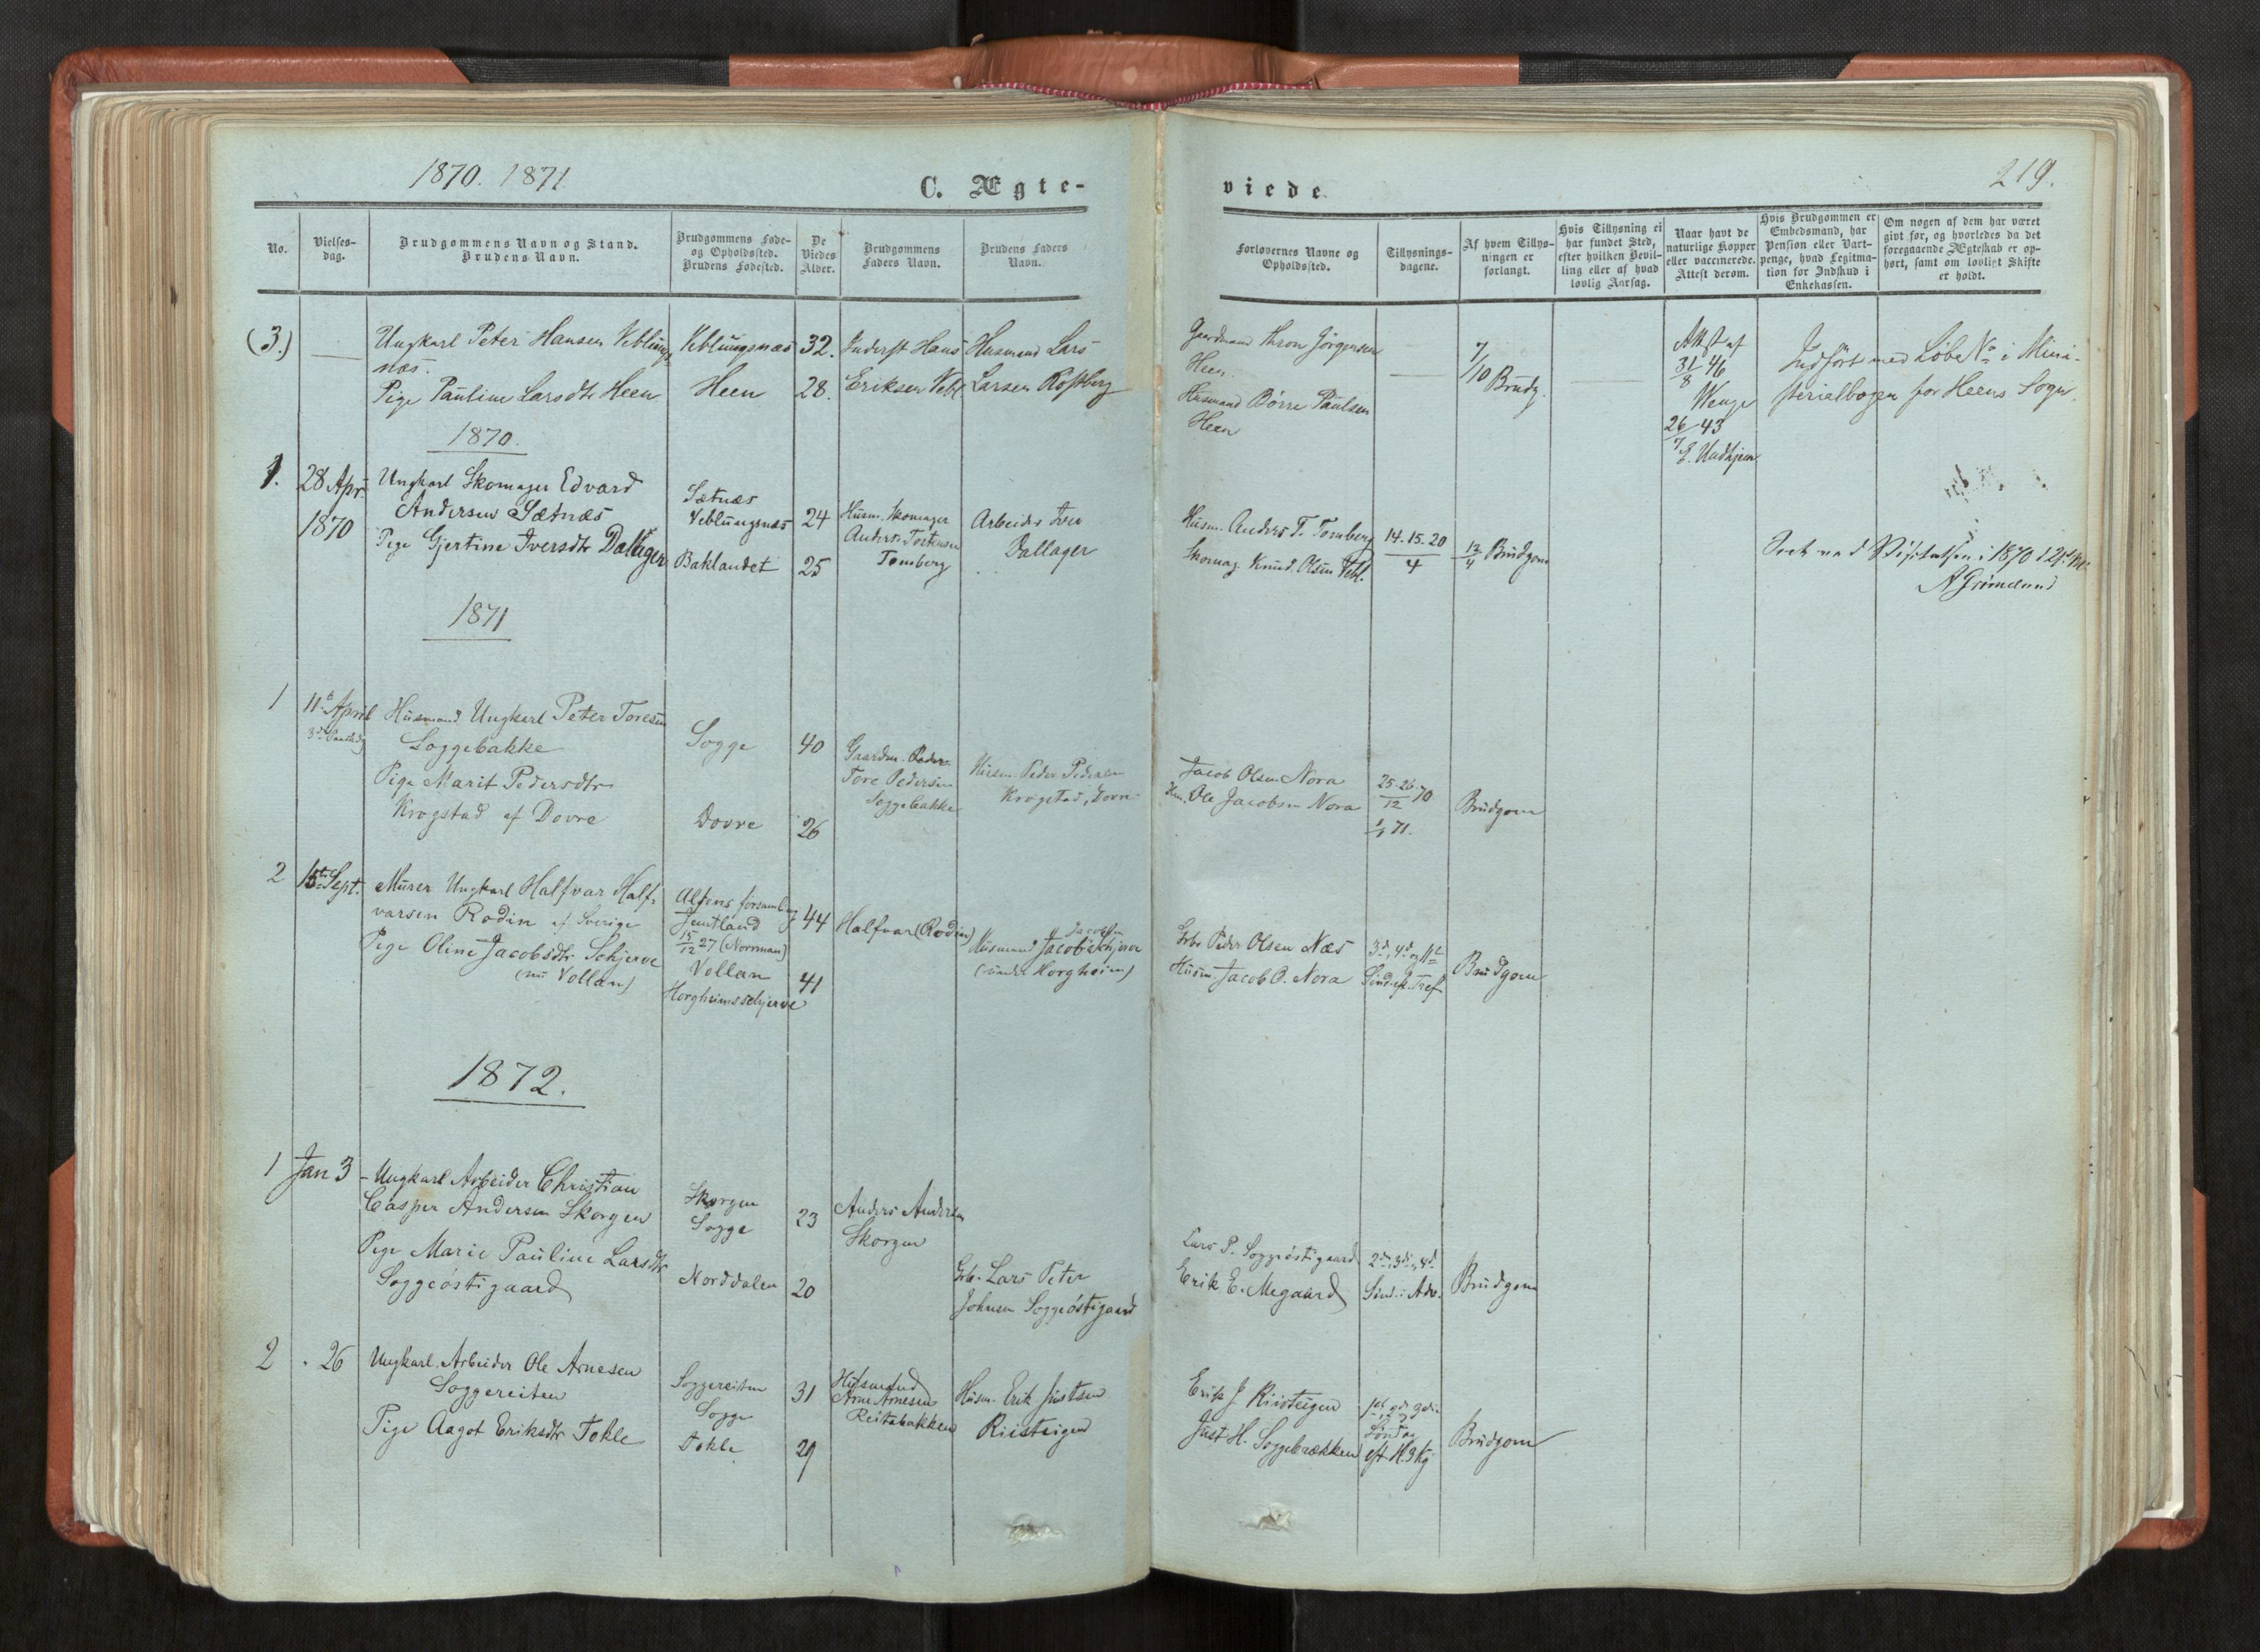 1870. 1871
C. Ægte-
viede.
219.
No.
Vielses-
dag.
Brudgommens Navn og Stand.
Brudens Navn.
Brudgommens Føde-
og Opholdssted.
Brudens Fødested.
De
Viedes
Alder.
Brudgommens
Faders Navn.
Brudens Faders
Navn.
Forlovernes Navne og
Opholdssted.
Tillysnings-
dagene.
Af hvem Tillys-
ningen er
forlangt.
Hvis Tillysning ei
har fundet Sted,
efter hvilken Bevil-
ling eller af hvad
lovlig Aarsag.
Naar havt de
naturlige Kopper
eller vaccinerede.
Attest derom.
Hvis Brudgommen er
Embedsmand, har
Pension eller Vart-
penge, hvad Legitma-
tion for Indskud i
Enkekassen.
Om nogen af dem har været
givt før, og hvorledes da det
foregaaende Ægteskab er op-
hørt, samt om lovligt Skifte
er holdt.
(3.)
Ungkarl Peter Hansen Veblungs
næs.
Pige Pauline Larsdtr Heen
Veblungsnæs
Heen
32.
28.
Inderst Hans
Eriksen Vebl.
Husmand Lars
Larsen Kofsberg
Gaardmand Thron Jörgensen
Heen.
Husmand Börre Paulsen
Heen
7/10 Brudg.
Attest af
31/8 46
Wenge
26/7 43
E. Uadhjem
Indfört med Löbe No i Mini-
sterialbogen for Heens Sogn.
1870.
1.
28 Apr.
1870
Ungkarl Skomager Edvard
Andersen Sætnæs
Pige Gjertine Iversdtr Dallager
Sætnæs
Veblungsnæs
Baklandet
24
25
Husm. Skomager
Anders Tostensen
Tomberg
Arbeider Iver
Dallager
Husm. Anders T. Tomberg
Skomag. Knud Olsen Vebl.
14.15.20
4
12/4 Brudgom
Seet ved Visitatsen i 1870
A Grimelund
1871
1
11te April
3d Paaskedg
Husmand Ungkarl Peter Toresen
Soggebakke
Pige Marit Pedersdtr
Krogstad af Dovre
Sogge
Dovre
40
26
Gaardm. Peder
Tore Pedersen
Soggebakke
Husm. Peder Pedersen
Krogstad, Dovre
Jacob Olsen Nora
Hm. Ole Jacobsen Nora
25.26./12 70
1/1 71.
Brudgom
2
15te Sept.
Murer Ungkarl Halfvar Half-
varsen Rodin af Sverige
Pige Oline Jacobsdtr Schjerve
(nu Vollan)
Alsens forsamling
Jemtland
15/12 27 (Norrman)
Vollan
Horgheimsschjerve
44
41
Halfvar (Rodin)
Jacobsen
Husmand Jacob Schjerve
(under Horgheim)
Grbr Peder Olsen Næs
Husm. Jacob O. Nora
3d, 4d og 11te
Sönd. ef. Tref
Brudgom
1872.
1
Jan 3
Ungkarl Arbeider Christian
Casper Andersen Skorgen
Pige Marie Pauline Larsdtr
Soggeöstigaard
Skorgen
Sogge
Norddalen
23
20
Anders Andersen
Skorgen
Grbr. Lars Peter
Johnsen Soggeöstigaard
Lars P. Soggeöstigaard
Erik E. Megaard
2d, 3di, 4d
Sönd. i Adv.
Brudgom
2
" 26
Ungkarl. Arbeider Ole Arnesen
Soggereiten
Pige Aagot Eriksdtr Tokle
Soggereiten
Sogge
Tokle
31
29
Husmand
Arne Arnesen
Reitebakken
Husm. Erik Justsen
Riisteigen
Erik J. Riisteigen
Just H. Soggebrækken
1st 2d 3di
Söndag
eft H.3Kg
Brudgom